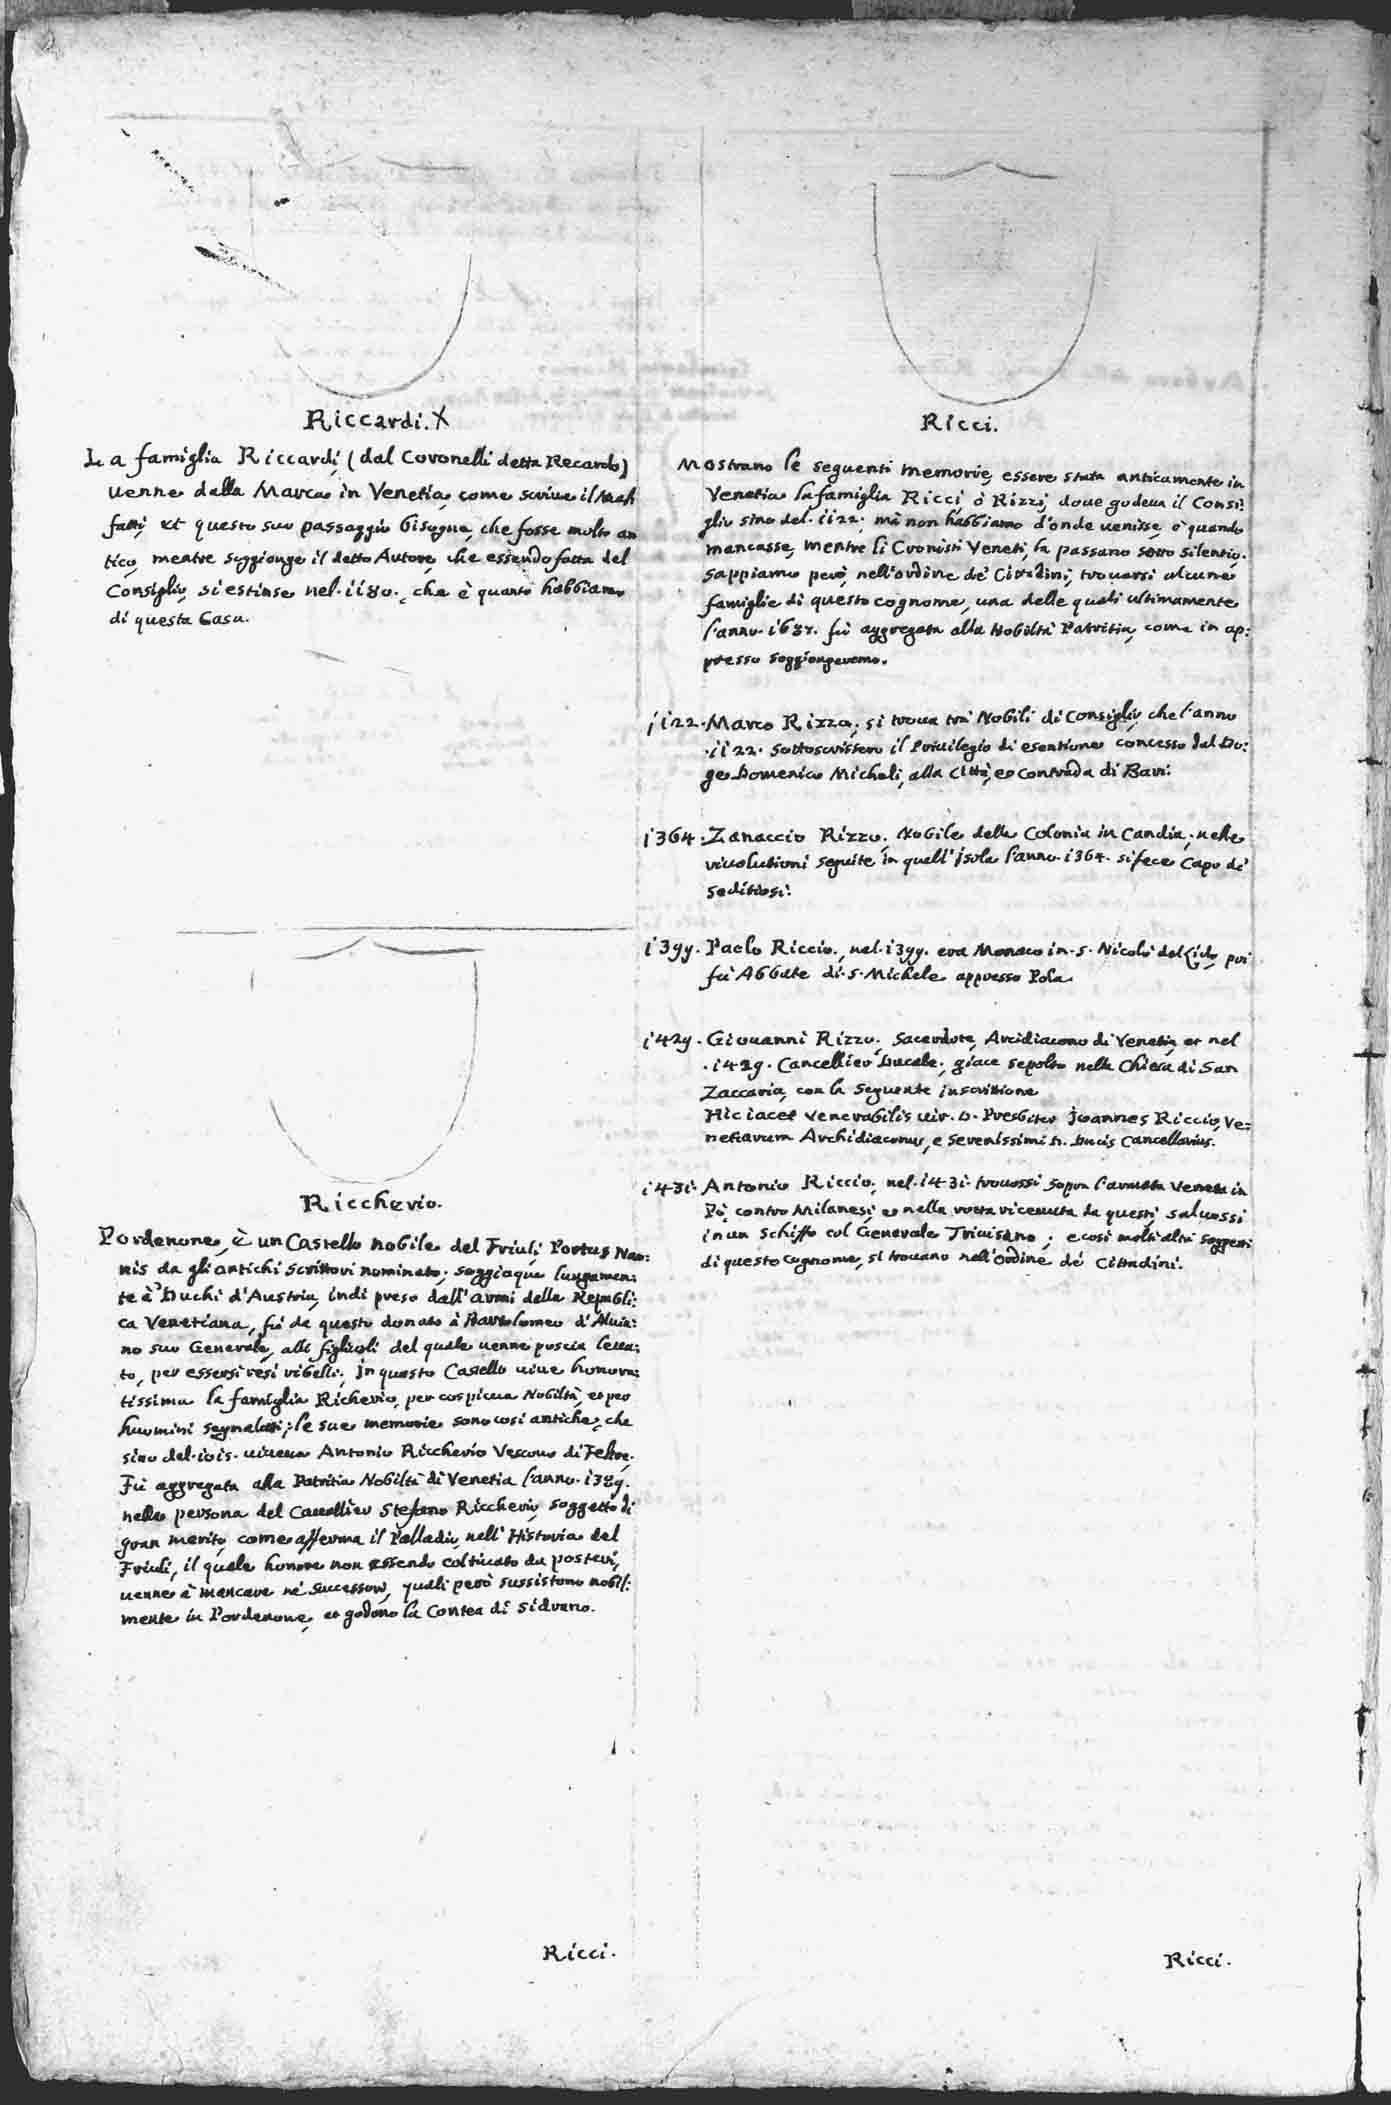 Riccardi. X
La famiglia Riccardi, (dal Coronelli detta Recardo)
uenne dalla Marca in Venetia, come scriue il Mal
fatti, et questo suo passaggio bisogna, che fosse molto an
tico, mentre soggionge il detto Autore, che essendo fatta del
Consiglio, si estinse nel .1180., che è quanto habbiamo
di questa Casa.
Ricchevio.
Pordenone, è un Castello nobile del Friuli, Portus Nao:
nis da gli antichi scrittori nominato; soggiaque lungamen:
te à Duchi d'Austria, indi preso dall'armi della Republi:
ca Venetiana, fù da questa donato à Bartolomeo d'Aluia:
no suo Generale, alli figliuoli del quale uenne poscia leua:
to, per essersi resi ribelli; in questo Castello uiue honora:
tissima la famiglia Richerio, per cospicua Nobiltà, et per
huomini segnalati; le sue memorie sono così antiche, che
sino del .1015. uiueua Antonio Ricchevio Vescouo di Feltre.
Fù aggregata alla Patritia Nobiltà di Venetia l'anno .1389.
nella persona del Cauallier Stefano Riccherio, soggetto di
gran merito, come afferma il Palladio, nell'Historia del
Friuli, il quale honore non essendo coltiuato da posteri,
uenne à mancare né Successori, quali però sussistono nobil:
mente in Pordenone, et godono la Contea di Sidrano.
Ricci.
Ricci.
Mostrano le seguenti memorie, essere stata anticamente in
Venetia la famiglia Ricci, ò Rizzi, doue godeua il Consi:
glio sino del .1122. mà non habbiamo d'onde uenisse, ò quando
mancasse, mentre li Cronisti Veneti la passano sotto silentio.
Sappiamo però, nell'ordine de' Cittadini, trouarsi alcune
famiglie di questo cognome, una delle quali ultimamente
l'anno .1687. fù aggregata alla Nobiltà Patritia, come in ap:
presso soggiongeremo.
1122. Marco Rizzo, si troua trà Nobili di Consiglio, che l'anno
.1122. sottoscrissero il Priuilegio di esentione concesso dal Do:
ge Domenico Micheli, alla Città, e Contrada di Bari.
1364. Zanaccio Rizzo, Nobile della Colonia in Candia, nelle
riuolutioni seguite in quell'Isola l'anno .1364. si fece Capo de'
seditiosi.
1399. Paolo Riccio, nel .1399. era Monaco in .S. Nicolò del Lido, poi
fù Abbate di .S. Michele appresso Pola.
1429. Giouanni Rizzo, Sacerdote, Arcidiacono di Venetia, et nel
.1429. Cancellier Ducale, giace sepolto nella Chiesa di San
Zaccaria, con la seguente inscrittione
Hic iacet venerabilis uir. D. Presbiter Joannes Riccio, Ve=
netiarum Archidiaconus, e Serenissimi D. Ducis Cancellarius.
1431. Antonio Riccio, nel .1431. trouossi sopra l'armata Veneta in
Pò, contro Milanesi, e nella rotta riceuuta da questi, saluossi
in un schiffo col Generale Triuisano; e così molti altri soggetti
di questo Cognome, si trouano nell'ordine de' Cittadini.
Ricci.